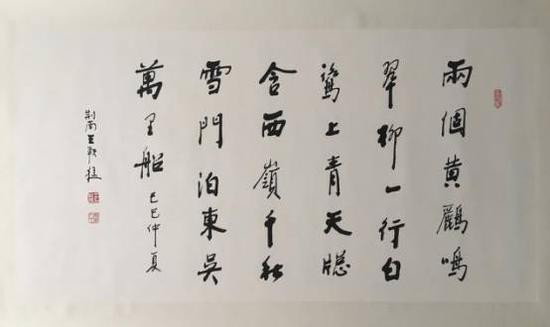 兩個黃鸝鳴
翠柳一行白
鷺上青天窓
含西嶺千秋
雪門泊東吳
萬里船 己巳仲夏
荆南王歌猛